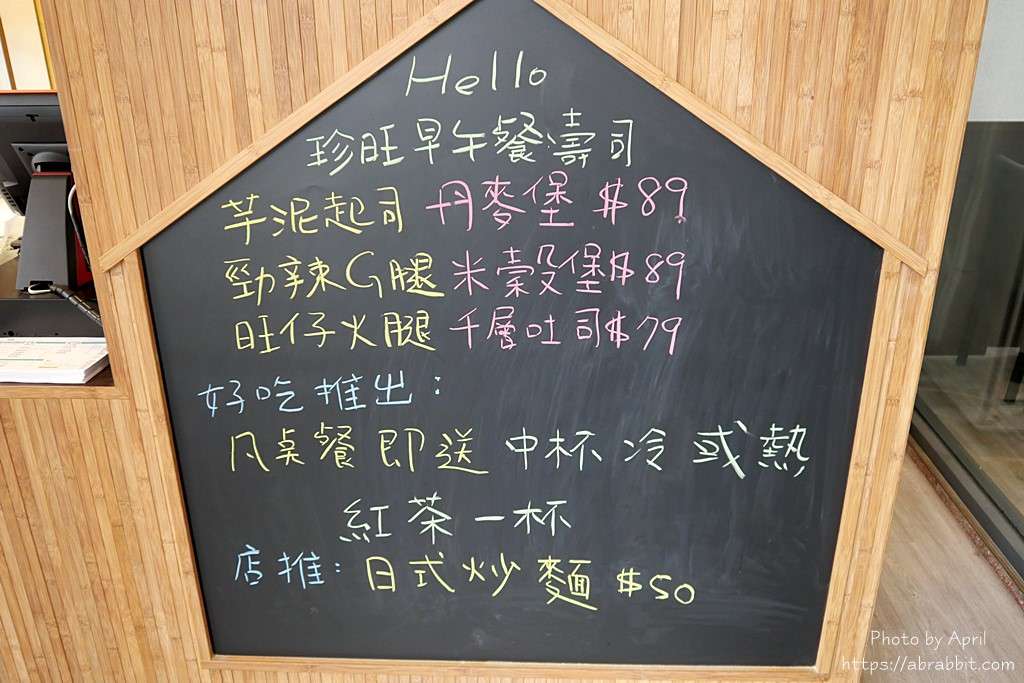 Hello
珍旺早午餐濤司
芋泥起司 丹麥堡 $89
勁辣G腿 米穀堡$89
旺仔火腿 千層吐司$79
好吃推出：
凡桌餐 即送 中杯 冷 或 熱
紅茶一杯
店推：日式炒麵 $50
Photo by April
https://abrabbit.com